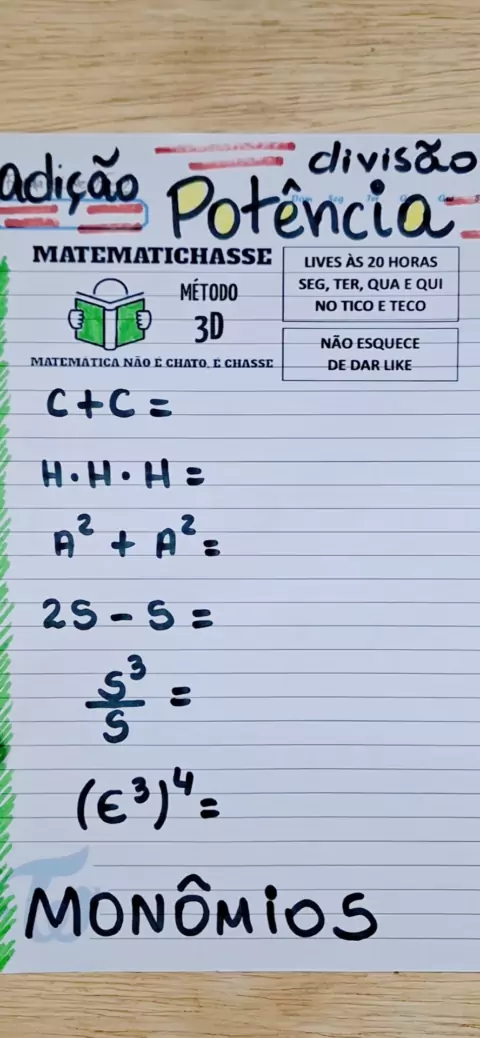 divisão
adição Potência
MATEMATICHASSE
MÉTODO
3D
MATEMÁTICA NÃO É CHATO, É CHASSE
LIVES ÀS 20 HORAS
SEG, TER, QUA E QUI
NO TICO E TECO
NÃO ESQUECE
DE DAR LIKE
C + C =
H · H · H =
A² + A² =
2S - S =
S³/S =
(E³)⁴ =
MONÔMiOS